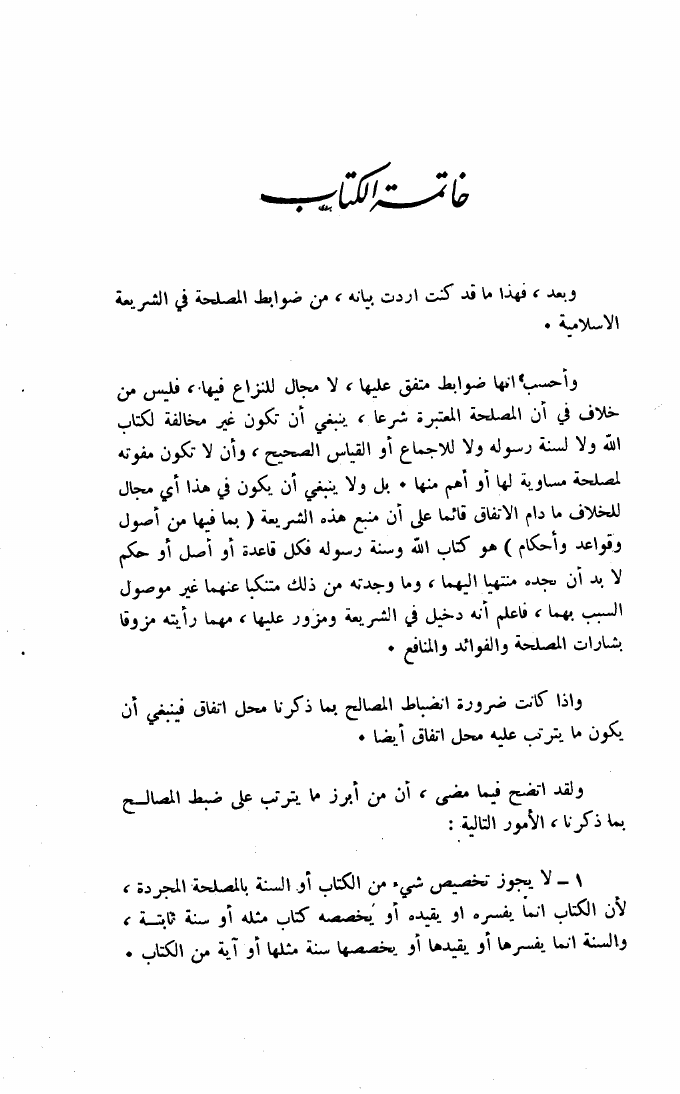 خاتمة الكتاب
وبعد ، فهذا ما قد كنت اردت بيانه ، من ضوابط المصلحة في الشريعة
الاسلامية .
وأحسب انها ضوابط متفق عليها ، لا مجال للنزاع فيها ، فليس من
خلاف في أن المصلحة المعتبرة شرعا ، ينبغي أن تكون غير مخالفة لكتاب
الله ولا لسنة رسوله ولا للاجماع أو القياس الصحيح ، وأن لا تكون مفوته
لمصلحة مساوية لها أو أهم منها . بل ولا ينبغي أن يكون في هذا أي مجال
للخلاف ما دام الاتفاق قائما على أن منبع هذه الشريعة ( بما فيها من أصول
وقواعد وأحكام ) هو كتاب الله وسنة رسوله فكل قاعدة أو أصل أو حكم
لا بد أن نجده منتهيا اليهما ، وما وجدته من ذلك متنكبا عنهما غير موصول
السبب بهما ، فاعلم أنه دخيل في الشريعة ومزور عليها ، مهما رأيته مزوقا
بشارات المصلحة والفوائد والمنافع .
واذا كانت ضرورة انضباط المصالح بما ذكرنا محل اتفاق فينبغي أن
يكون ما يترتب عليه محل اتفاق أيضا .
ولقد اتضح فيما مضى ، أن من أبرز ما يترتب على ضبط المصالــح
بما ذكرنا ، الأمور التالية :
١ – لا يجوز تخصيص شيء من الكتاب أو السنة بالمصلحة المجردة ،
لأن الكتاب انما يفسره او يقيده أو يُخصصه كتاب مثله أو سنة ثابتــة ،
والسنة انما يفسرها أو يقيدها أو يخصصها سنة مثلها أو آية من الكتاب .